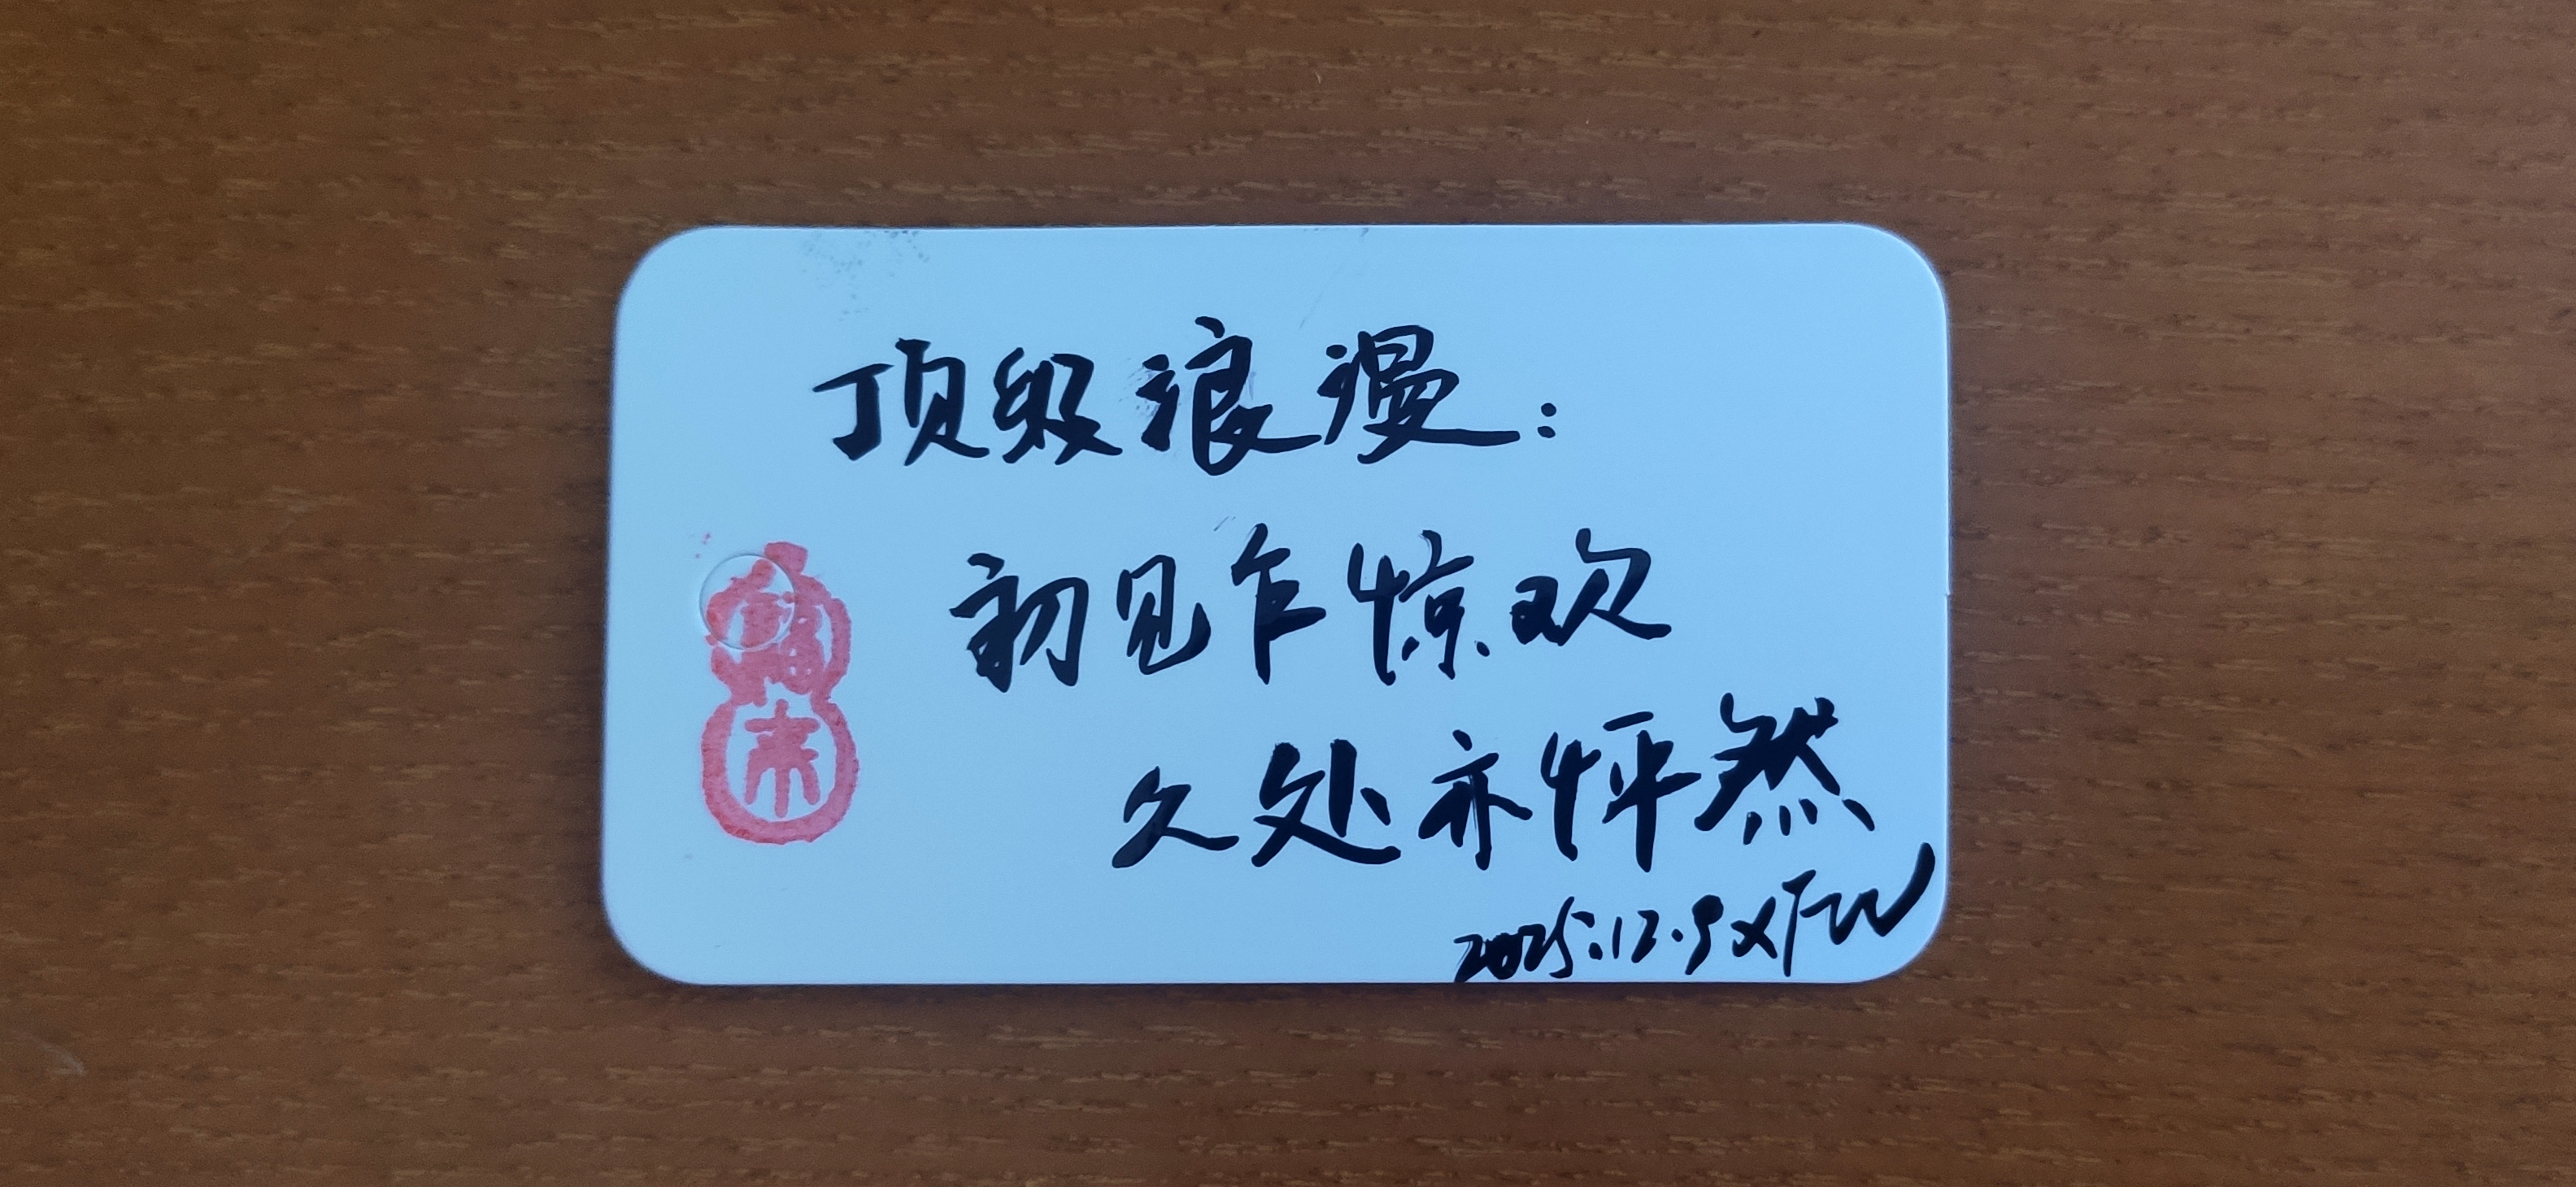 顶级浪漫：
初见乍惊欢
久处亦怦然
2025.12.9 XFW